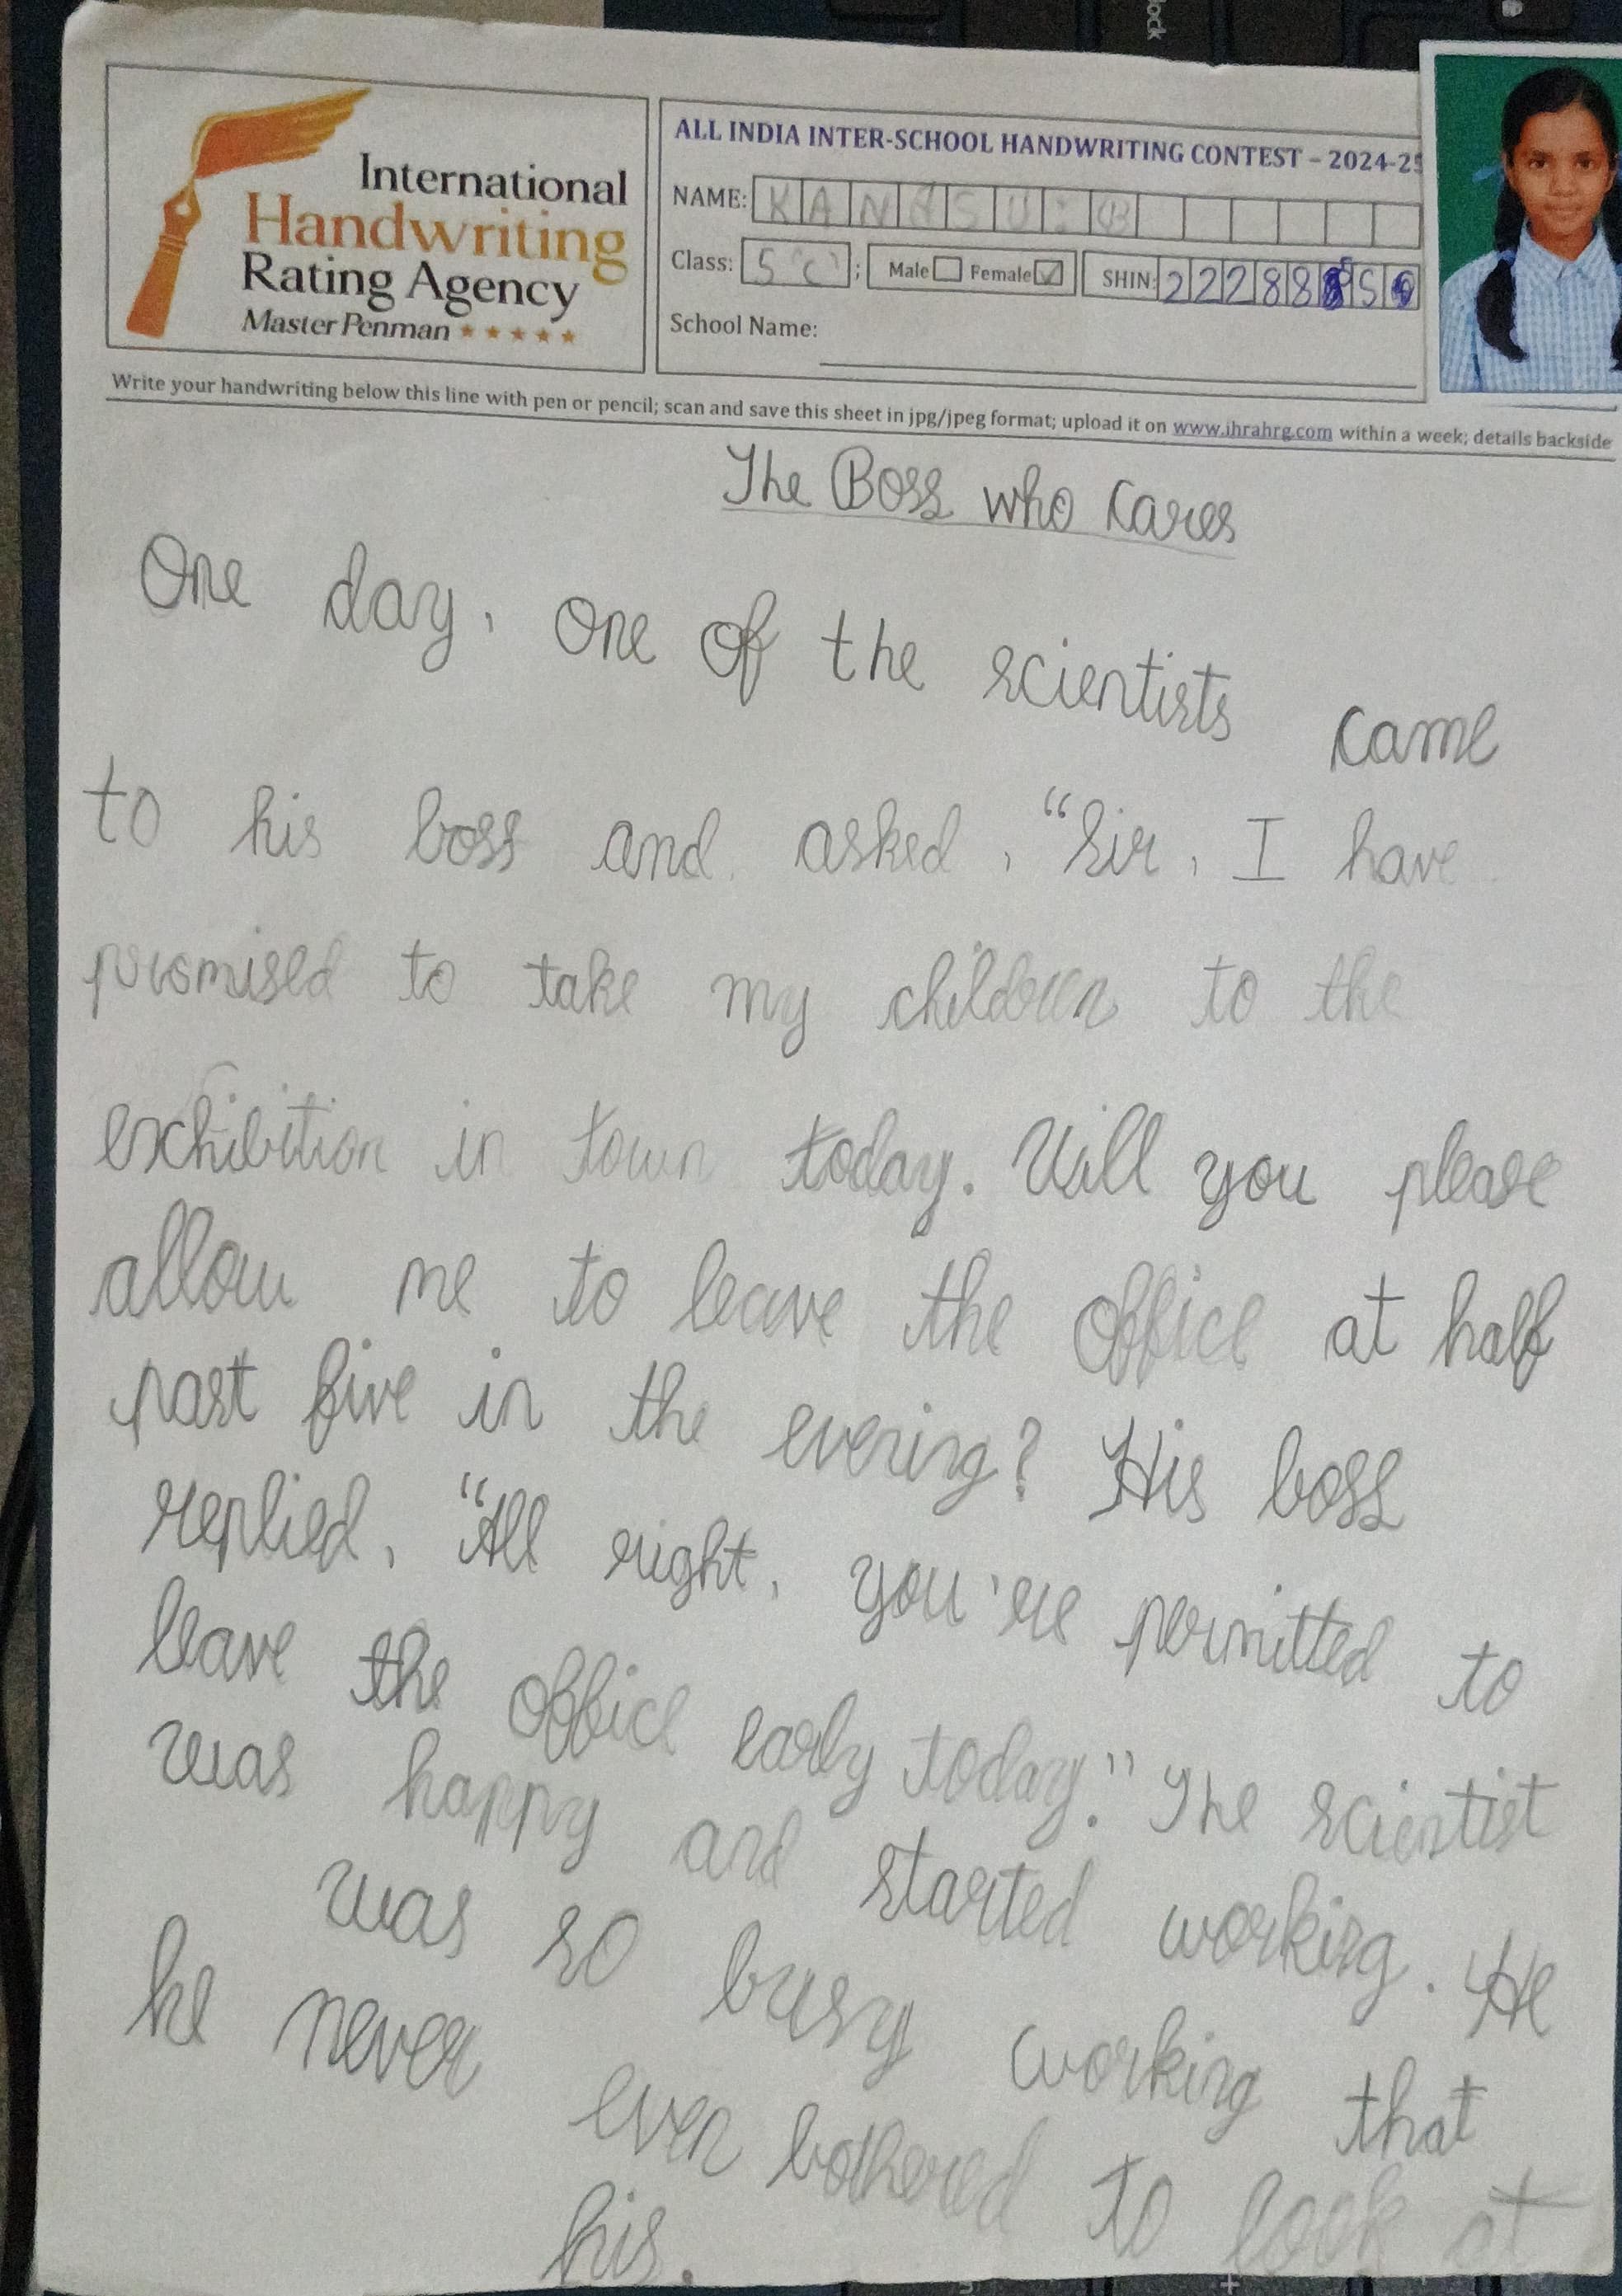 International
Handwriting
Rating Agency
Master Penman
ALL INDIA INTER-SCHOOL HANDWRITING CONTEST – 2024-25
NAME: KANASU : B
Class: 5 'C' ; Male Female ✓ SHIN: 22288 5
School Name:
Write your handwriting below this line with pen or pencil; scan and save this sheet in jpg/jpeg format; upload it on www.ihrahrg.com within a week; details backside
The Boss who cares
One day, one of the scientists came
to his boss and asked, "Sir, I have
promised to take my children to the
exhibition in town today. Will you please
allow me to leave the office at half
past five in the evening? His boss
replied, "All right, you're permitted to
leave the office early today." The scientist
was happy and started working. He
was so busy working that
he never even bothered to look at
his.